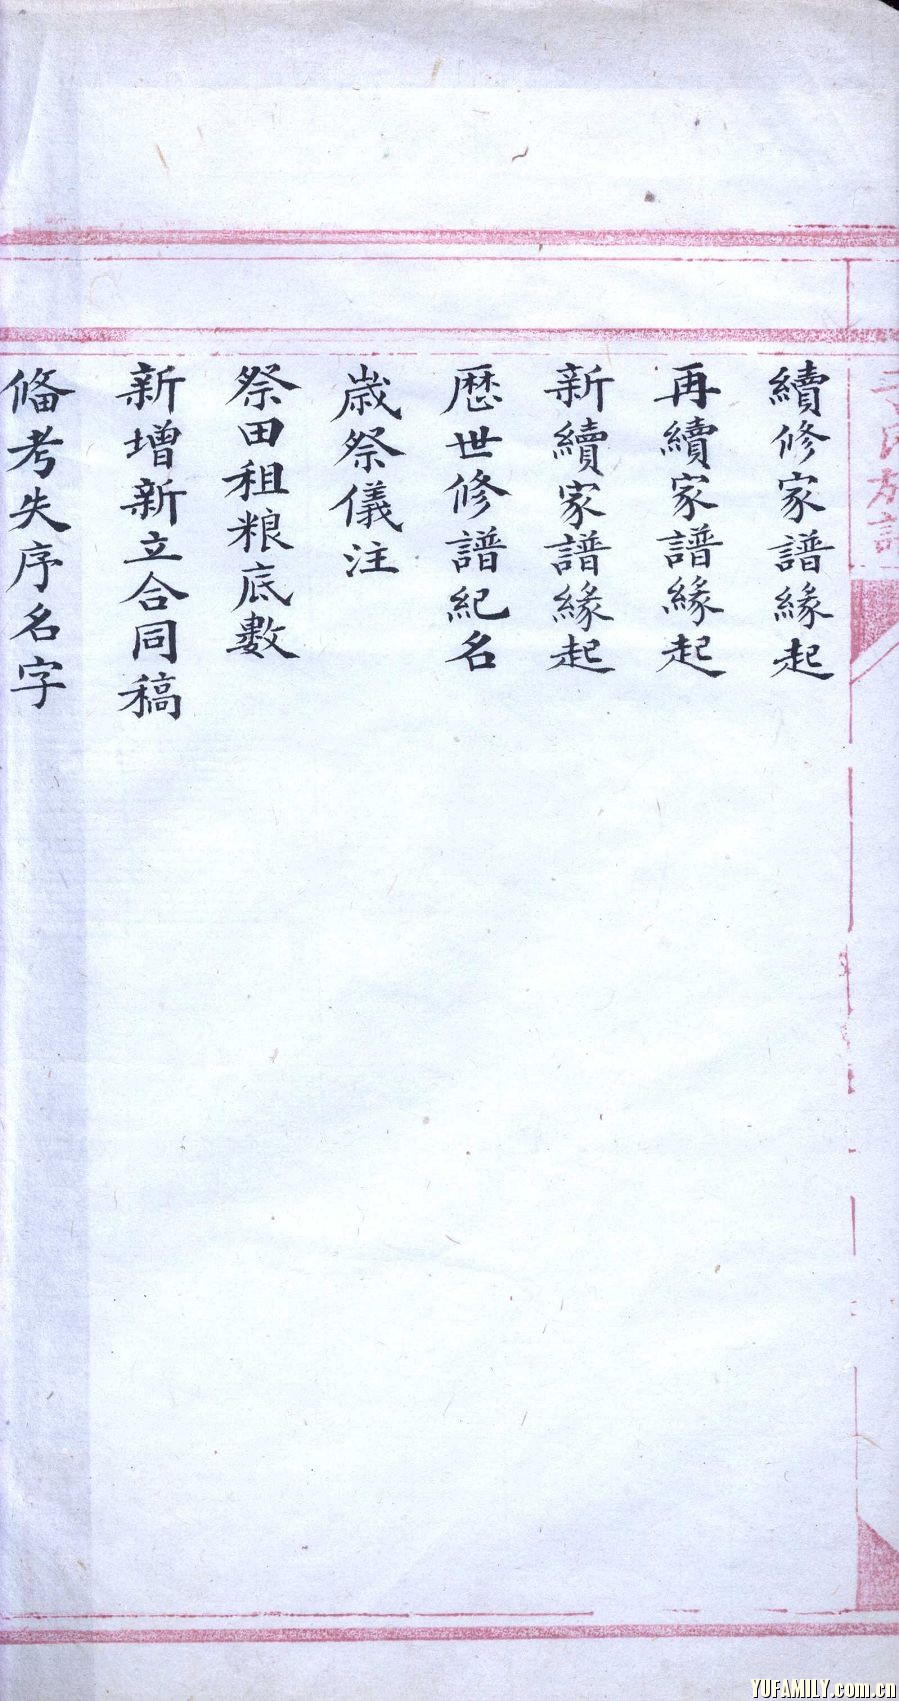 續修家譜緣起
再續家譜緣起
新續家譜緣起
歴世修譜紀名
歳祭儀注
祭田租粮底數
新增新立合同稿
俻考失序名字
氏族譜
YUFAMILY.com.cn